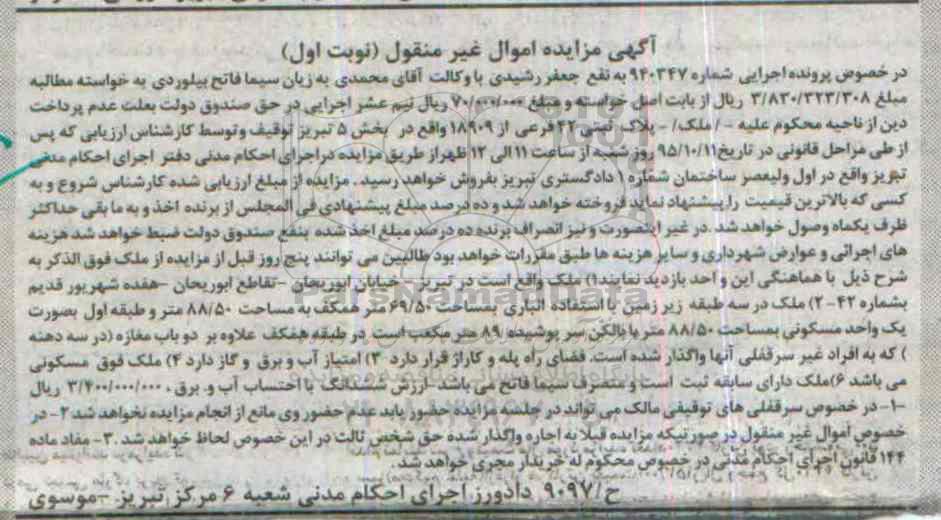 آگهی مزایده اموال غیر منقول (نوبت اول)
در خصوص پرونده اجرایی شماره ۹۴۰۳۴۷ به نفع جعفر رشیدی با وکالت آقای محمدی به زیان سیما فاتح بیلوردی به خواسته مطالبه
مبلغ ۳/۸۳۰/۳۲۳/۳۰۸ ریال از بابت اصل خواسته و مبلغ ۷۰/۰۰۰/۰۰۰ ریال نیم عشر اجرایی در حق صندوق دولت بعلت عدم پرداخت
دین از ناحیه محکوم علیه - / ملک / - پلاک ثبتی ۴۲ فرعی از ۱۸۹۰۹ واقع در بخش ۵ تبریز توقیف وتوسط کارشناس ارزیابی که پس
از طی مراحل قانونی در تاریخ ۹۵/۱۰/۱۱ روز شنبه از ساعت ۱۱ الی ۱۲ ظهراز طریق مزایده دراجرای احکام مدنی دفتر اجرای احکام مدنی
تبریز واقع در اول ولیعصر ساختمان شماره ۱ دادگستری تبریز بفروش خواهد رسید . مزایده از مبلغ ارزیابی شده کارشناس شروع و به
کسی که بالاترین قیمت را پیشنهاد نماید فروخته خواهد شد و ده درصد مبلغ پیشنهادی فی المجلس از برنده اخذ و به ما بقی حداکثر
ظرف یکماه وصول خواهد شد .در غیر اینصورت و نیز انصراف برنده ده درصد مبلغ اخذ شده بنفع صندوق دولت ضبط خواهد شد هزینه
های اجرائی و عوارض شهرداری و سایر هزینه ها طبق مقررات خواهد بود طالبین می توانند پنج روز قبل از مزایده از ملک فوق الذکر به
شرح ذیل با هماهنگی این و احد بازدید نمایند۱) ملک واقع است در تبریز - خیابان ابوریحان -تقاطع ابوریحان -هفده شهریور قدیم
بشماره ۴۲- ۲) ملک در سه طبقه زیر زمین با استفاده انباری بمساحت ۶۹/۵۰ متر همکف به مساحت ۸۸/۵۰ متر و طبقه اول بصورت
یک واحد مسکونی بمساحت ۸۸/۵۰ متر با بالکن سر پوشیده ۸۹ متر مکعب است در طبقه همکف علاوه بر دو باب مغازه (در سه دهنه
) که به افراد غیر سرقفلی آنها واگذار شده است. فضای راه پله و کاراژ قرار دارد ۳) امتیاز آب و برق و گاز دارد ۴) ملک فوق مسکونی
می باشد ۶)ملک دارای سابقه ثبت است و متصرف سیما فاتح می باشد -ارزش ششدانگ با احتساب آب و. برق . ۳/۴۰۰/۰۰۰/۰۰۰ ریال
-۱- در خصوص سرقفلی های توقیفی مالک می تواند در جلسه مزایده حضور یابد عدم حضور وی مانع از انجام مزایده نخواهد شد ۲- در
خصوص اموال غیر منقول در صورتیکه مزایده قبلا به اجاره واگذار شده حق شخص ثالث در این خصوص لحاظ خواهد شد .۳- مفاد ماده
۱۴۴ قانون اجرای احکام مدنی در خصوص محکوم له خریدار مجری خواهد شد.
ح/۹۰۹۷ دادورز اجرای احکام مدنی شعبه ۶ مرکز تبریز -موسوی